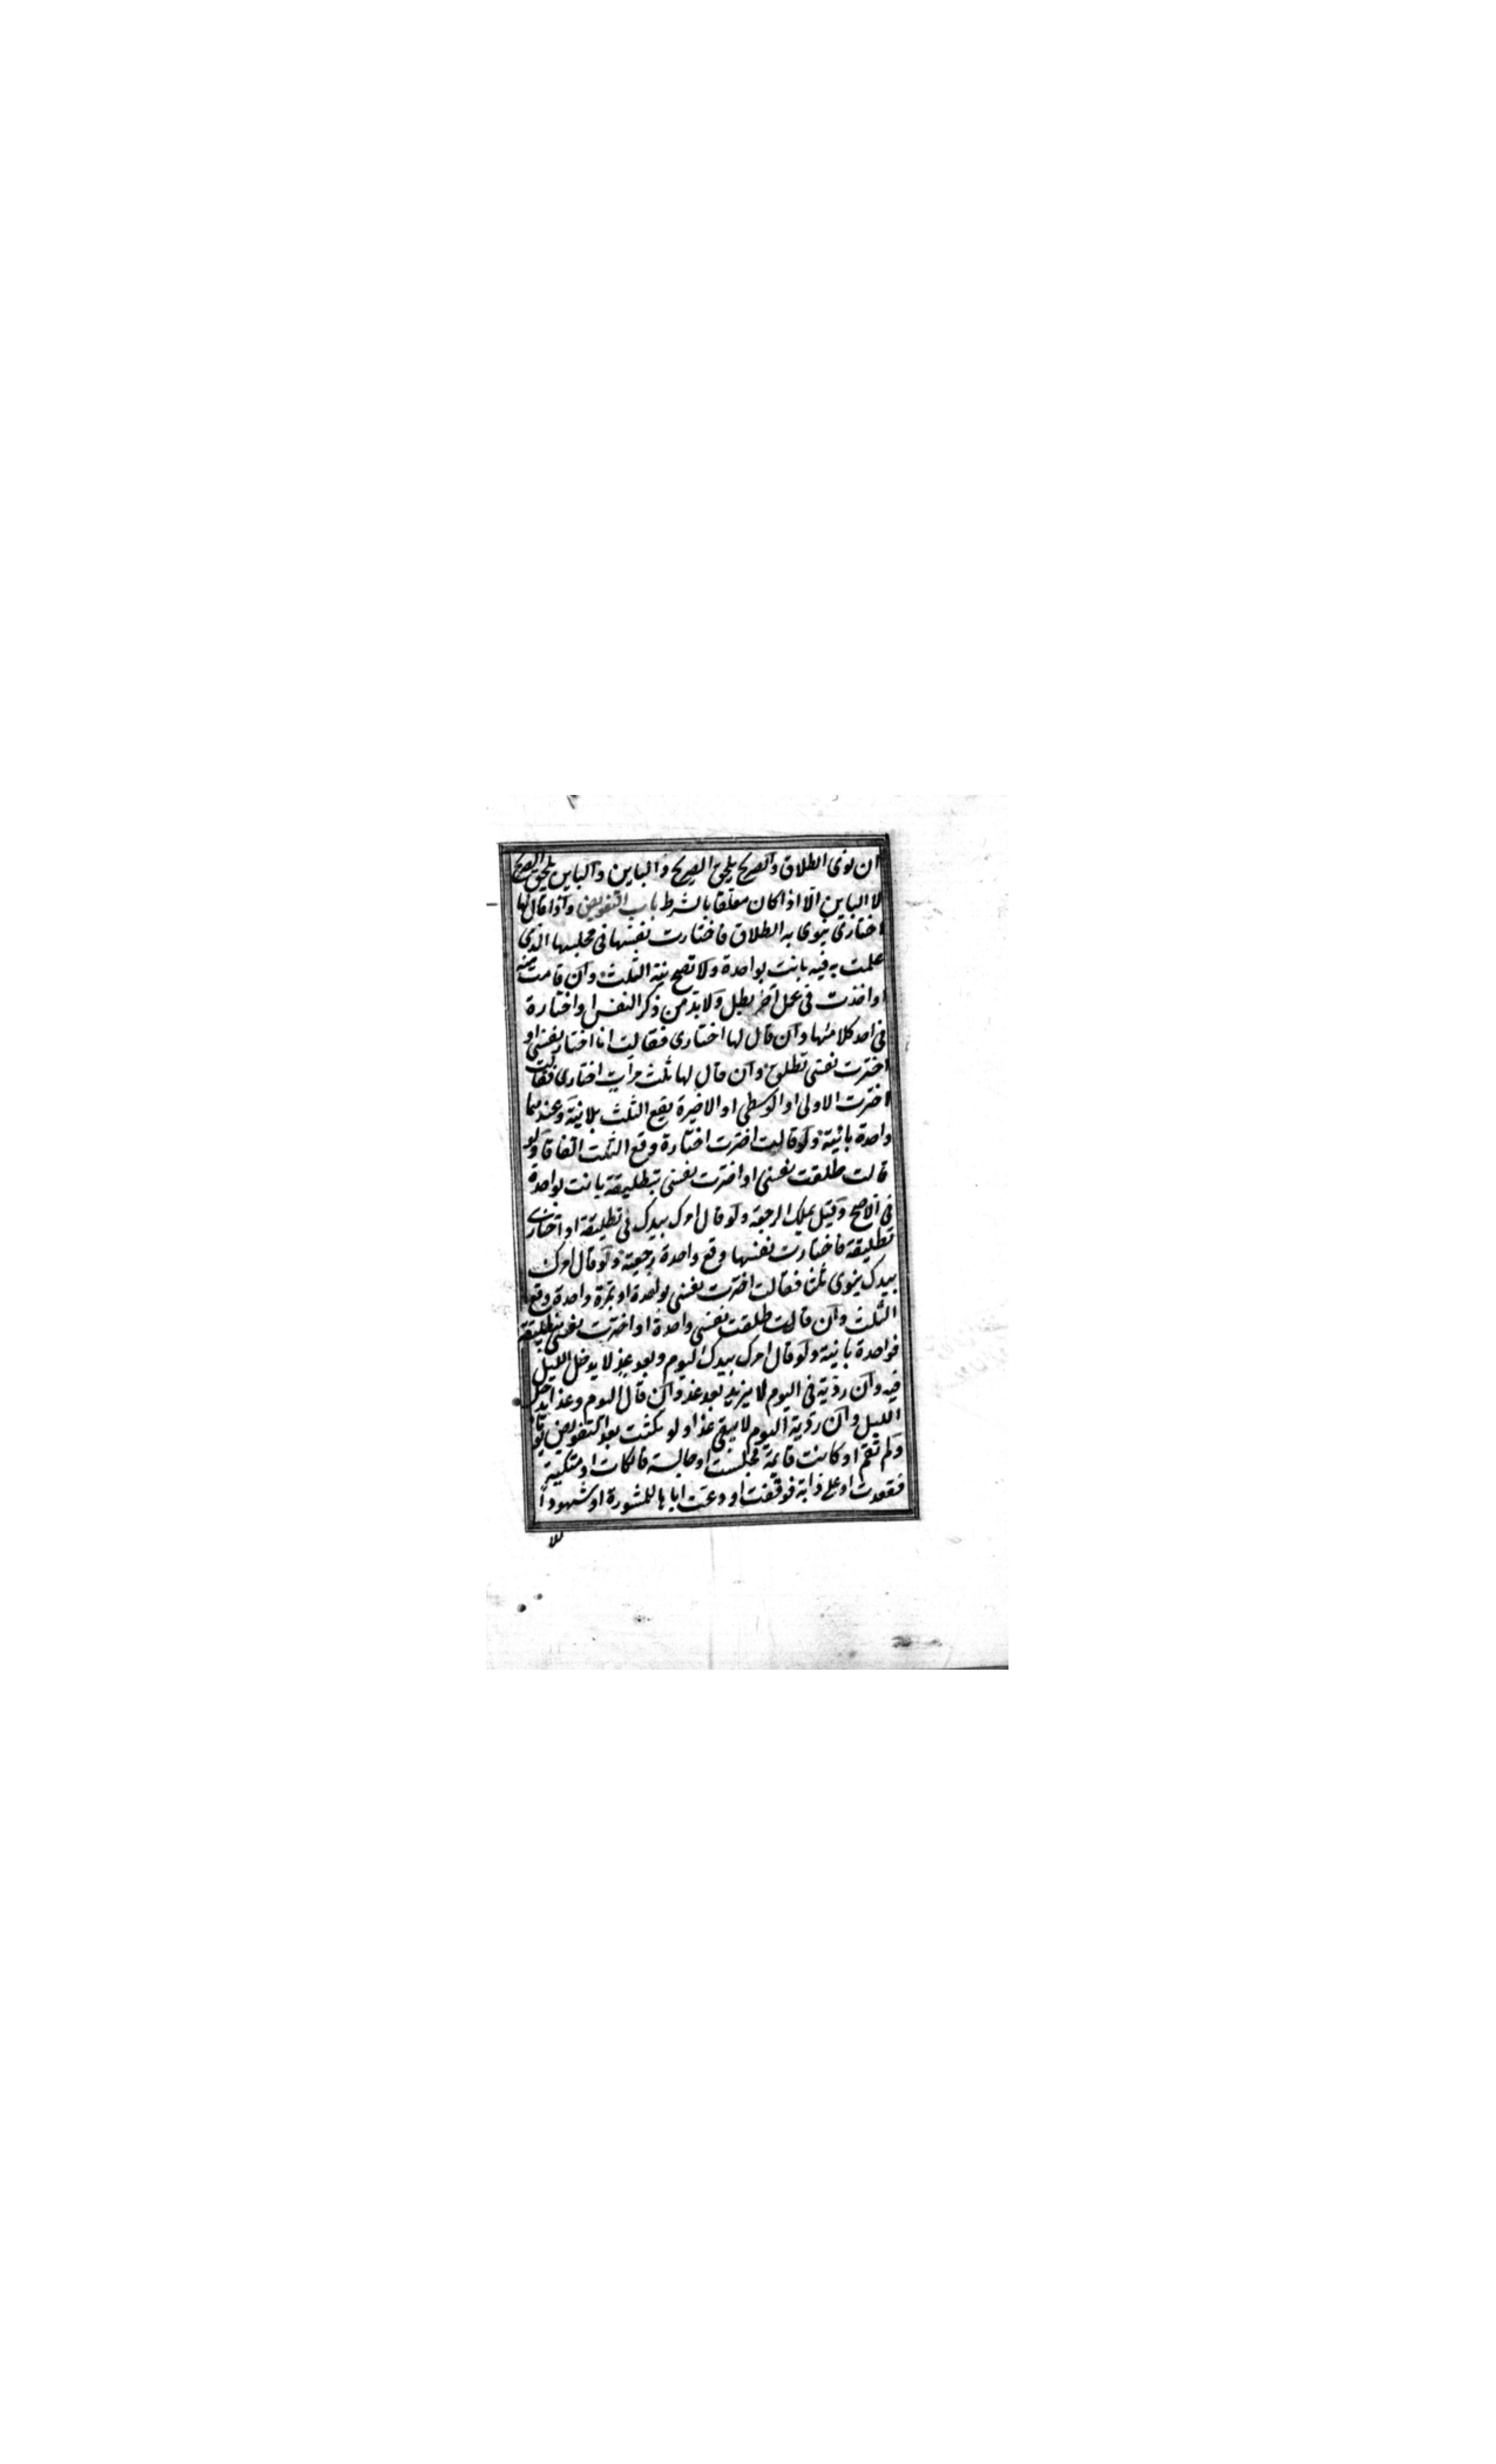 ان نوى الطلاق والصريح يلحق الصريح والباين والباين يلحق الصريح
لا الباين الا اذا كان معلقا بالشرط باب التفويض واذا قال لها
اختارى ينوى به الطلاق فاختارت نفسها فى مجلسها الذى
علمت به فيه بانت بواحدة ولا تصح نية الثلث وان قامت منه
او اخذت فى عمل آخر بطل ولا بد من ذكر النفس او اختارة
فى احد كلاميهما وان قال لها اختارى فقالت انا اختار نفسى او
اخترت نفسى تطلق وان قال لها ثلث مرات اختارى فقالت
اخترت الاولى او الوسطى او الاخيرة يقع الثلث بلا نية وعندهما
واحدة بائنة ولو قالت اخترت اختارة وقع الثلث اتفاقا ولو
قالت طلقت نفسى او اخترت نفسى بتطليقة بانت بواحدة
فى الاصح وقيل يملك الرجعة ولو قال امرك بيدك فى تطليقة او اختارى
تطليقة فاختارت نفسها وقع واحدة رجعية ولو قال امرك
بيدك ينوى ثلثا فقالت اخترت نفسى بواحدة او بمرة واحدة وقع
الثلث وان قالت طلقت نفسى واحدة او اخترت نفسى بتطليقة
فواحدة بانية ولو قال امرك بيدك اليوم وبعد غد لا يدخل الليل
فيه وان ردته فى اليوم لا يزيد بعد غد وان قال اليوم وغدا يدخل
الليل وان ردته اليوم لا يبقى غدا ولو مكثت بعد التفويض يوما
ولم تقم او كانت قايمة فجلست او جالسة فاتكات او متكية
فقعدت او على دابة فوقفت او دعت اباها للمشورة او شهودا